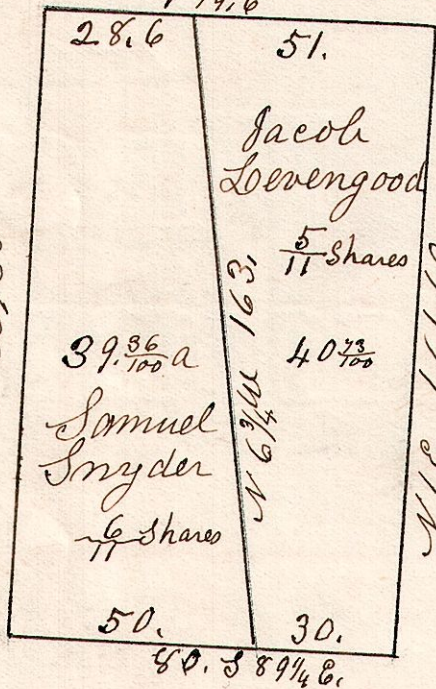 28.6
51.
Jacob
Levengood
5/11 Shares
N 6 3/4 W 163,
39. 36/100 a
40 73/100
Samuel
Snyder
6/11 Shares
50.
30.
80. S 89 1/4 E.